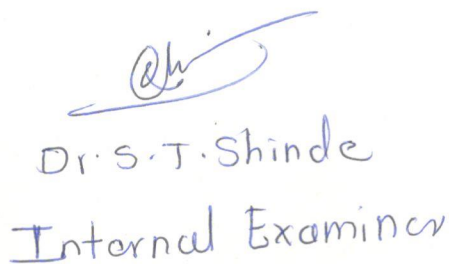 Dr. S. T. Shinde
Internal Examiner